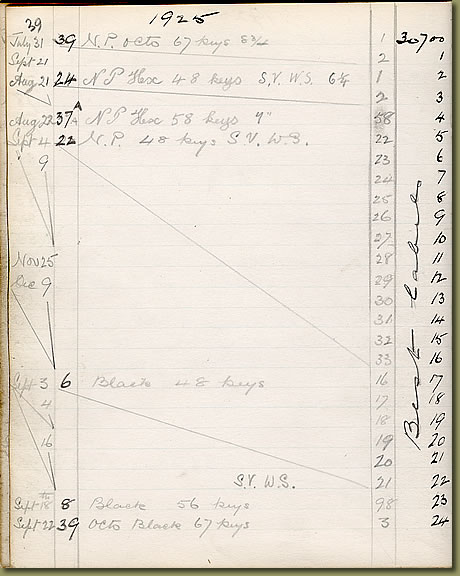 39 1925
July 31 39 N.P. Octo 67 keys 8¾ 1 30700
Sept 21 2 1
Aug 21 24 N P Hex 48 keys S.V. W.S. 6¼ 1 2
2 3
Aug 22 37A N P Hex 58 keys 58 4
Sept 4 22 N.P. 48 keys S.V. W.S. 22 5
9 23 6
24 7
25 8
26 9
27 10
Nov 25 28 11
Dec 9 29 12
30 13
31 14
32 15
33 16
Sept 3 6 Black 48 keys 16 17
4 17 18
18 19
16 19 20
20 21
S.V. W.S. 21 22
Sept 18th 8 Black 56 keys 98 23
Sept 22 39 Octo Black 67 keys 3 24
Best